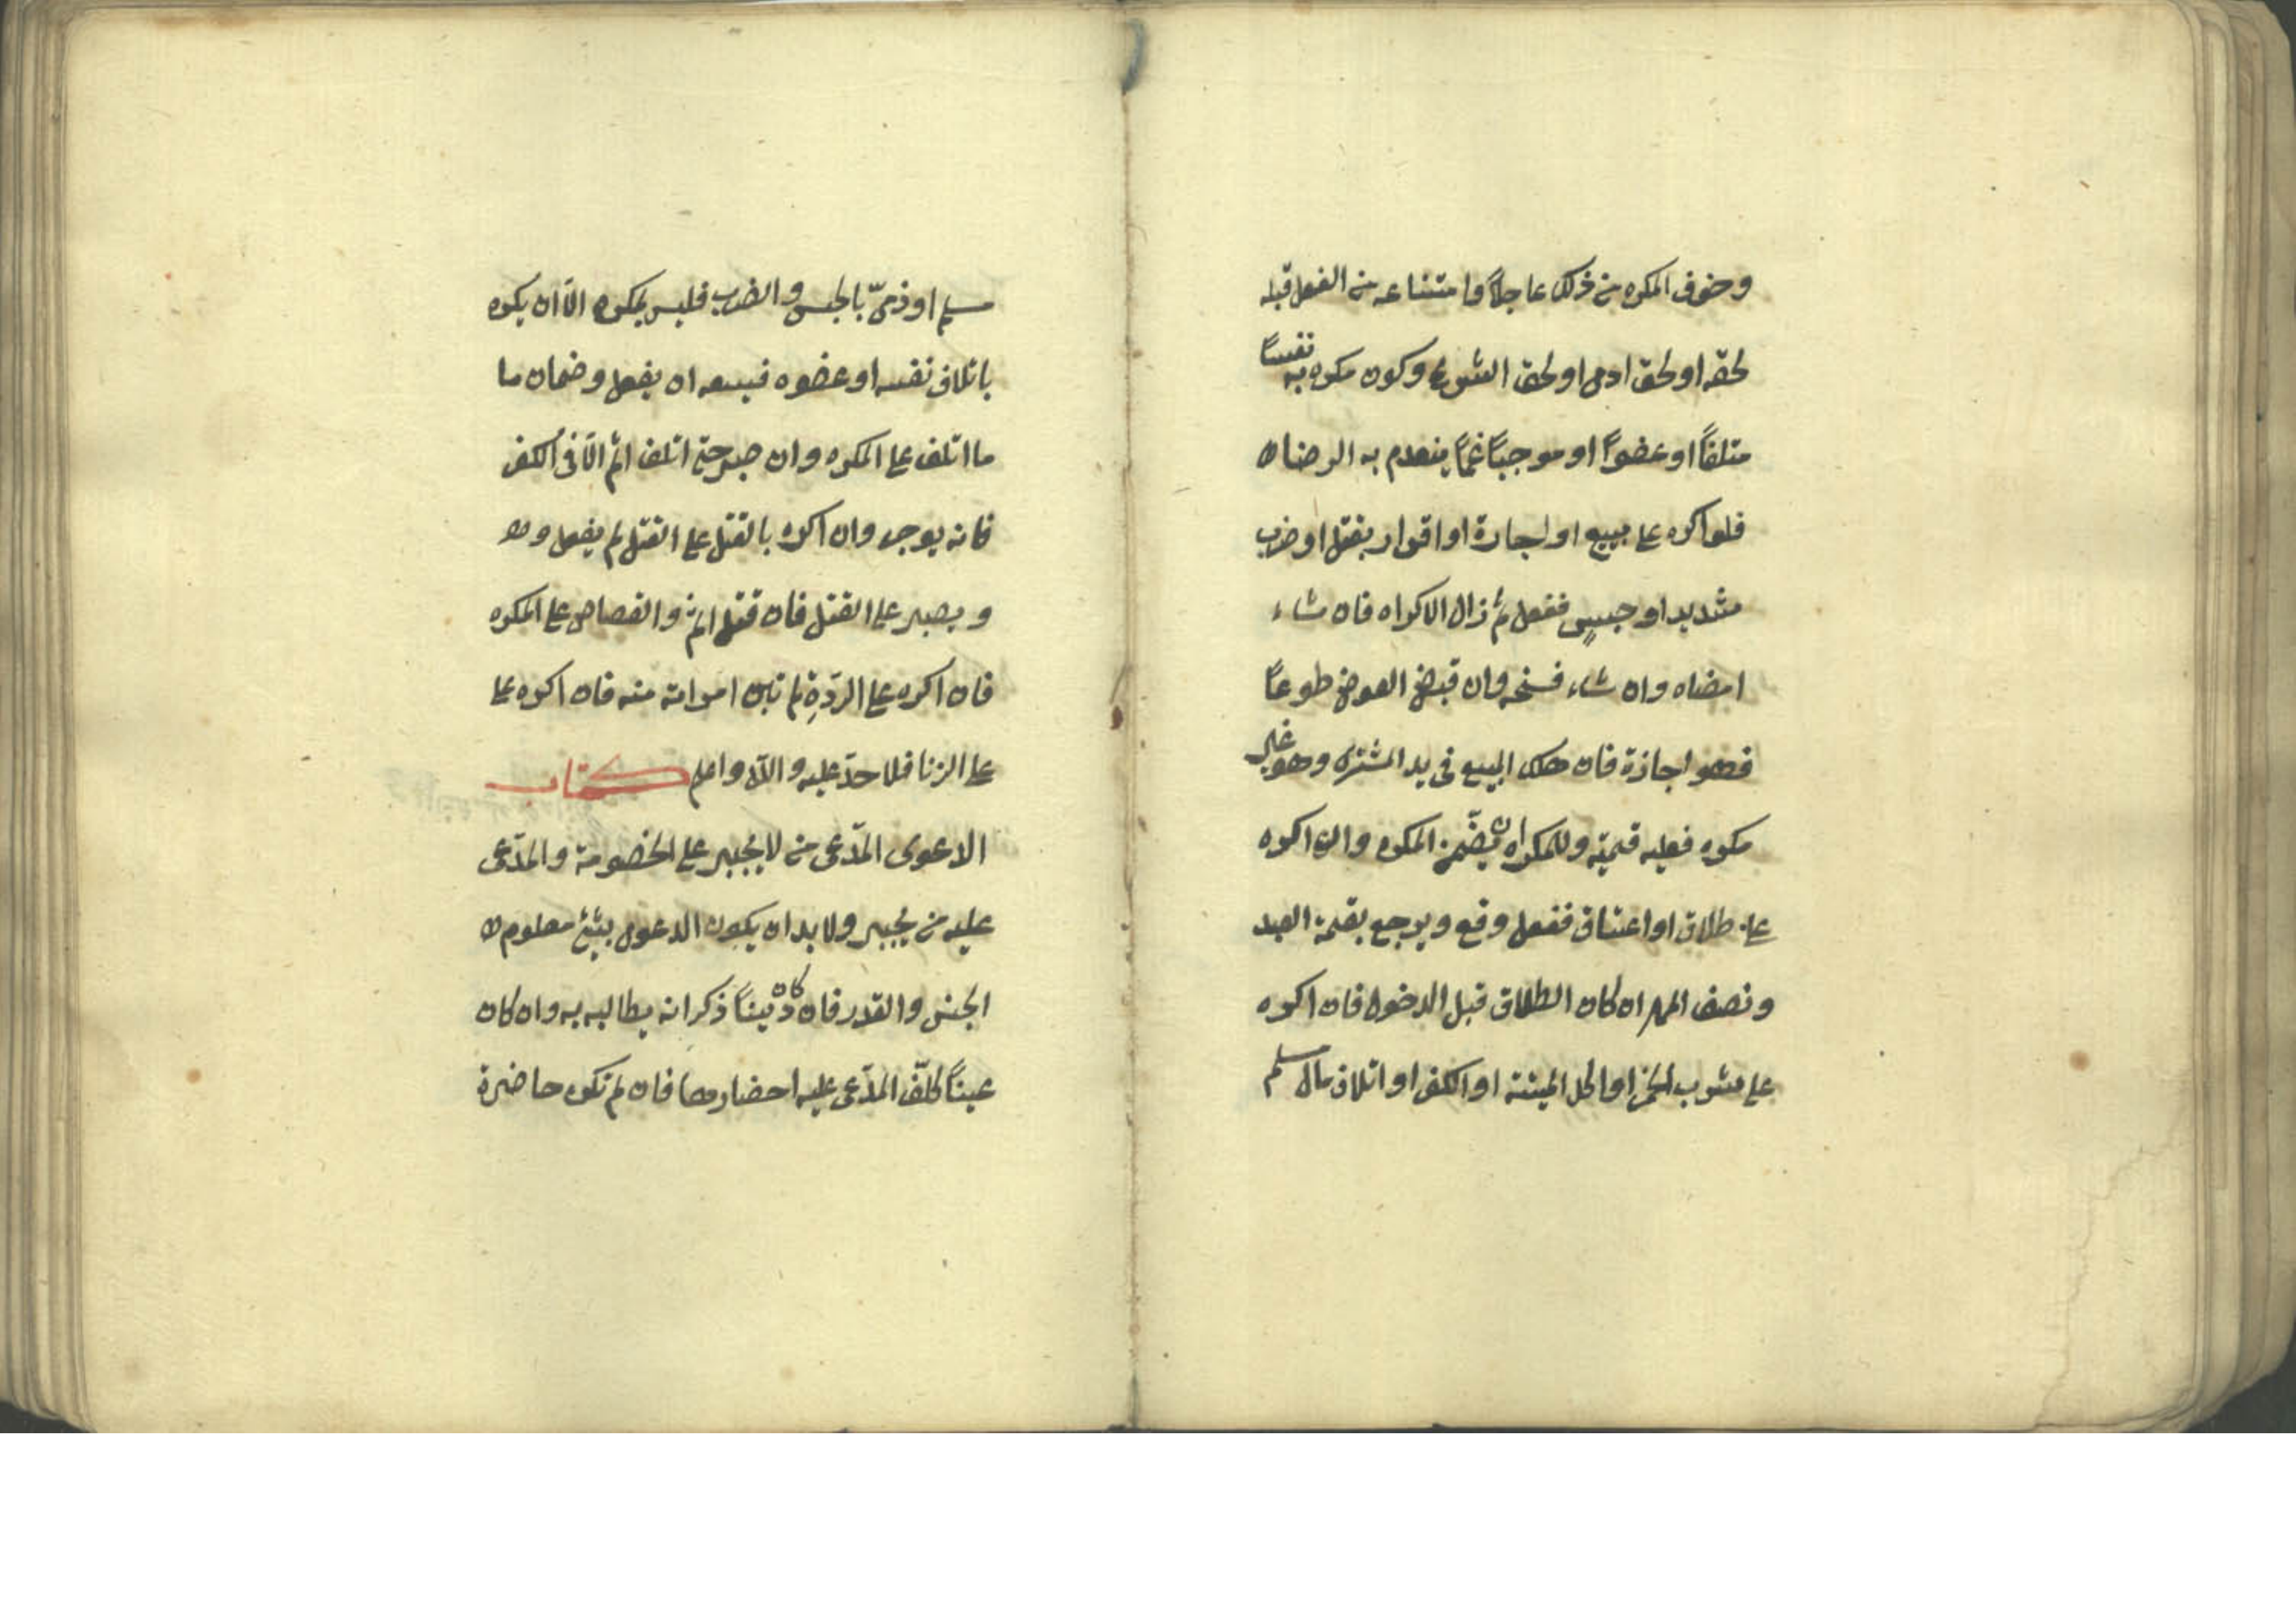 وخوف المكره من ذلك عاجلاً وامتناعه من الفعل قبله
لحقه او لحق ادمى او لحق الشرع وكون مكره به نفساً
متلفاً او عضواً او موجباً غماً ينعدم به الرضاء
فلو اكره على بيع او اجارة او اقرار بقتل او ضرب
شديد او حبس ففعل ثم زال الاكراه فان شاء
امضاه وان شاء فسخه وان قبض العوض طوعاً
فهو اجازة فان هلك المبيع فى يد المشترى وهو غير
مكره فعليه قيمته وللمكره ان يضمّن المكره وان اكره
على طلاق او اعتاق ففعل وقع ويرجع بقيمة العبد
ونصف المهر ان كان الطلاق قبل الدخول فان اكره
على شرب الخمر او اكل الميتة او الكفر او اتلاف مال مسلم
مسلم او ذمىّ بالحبس والضرب فليس بمكره الّا ان يكره
باتلاف نفسه او عضوه فيسعه ان يفعل وضمان ما
ما اتلف على المكره وان صبر حتى اتلف اثم الّا فى الكفر
فانه يوجر وان اكره بالقتل على القتل لم يفعل
ويصبر على القتل فان قتل اثم والقصاص على المكره
فان اكره على الردّةِ لم تبن امراته منه فان اكره على
على الزنا فلا حدّ عليه والله واعلم كتاب
الدعوى المدّعى من لا يُجبر على الخصومة والمدّعى
عليه من يُجبر ولا بد ان يكون الدعوى بشئ معلوم
الجنس والقدر فان كان ديناً ذكر انه يطالبه به وان كان
عيناً كلّف المدّعى عليه احضارها فان لم تكن حاضرة